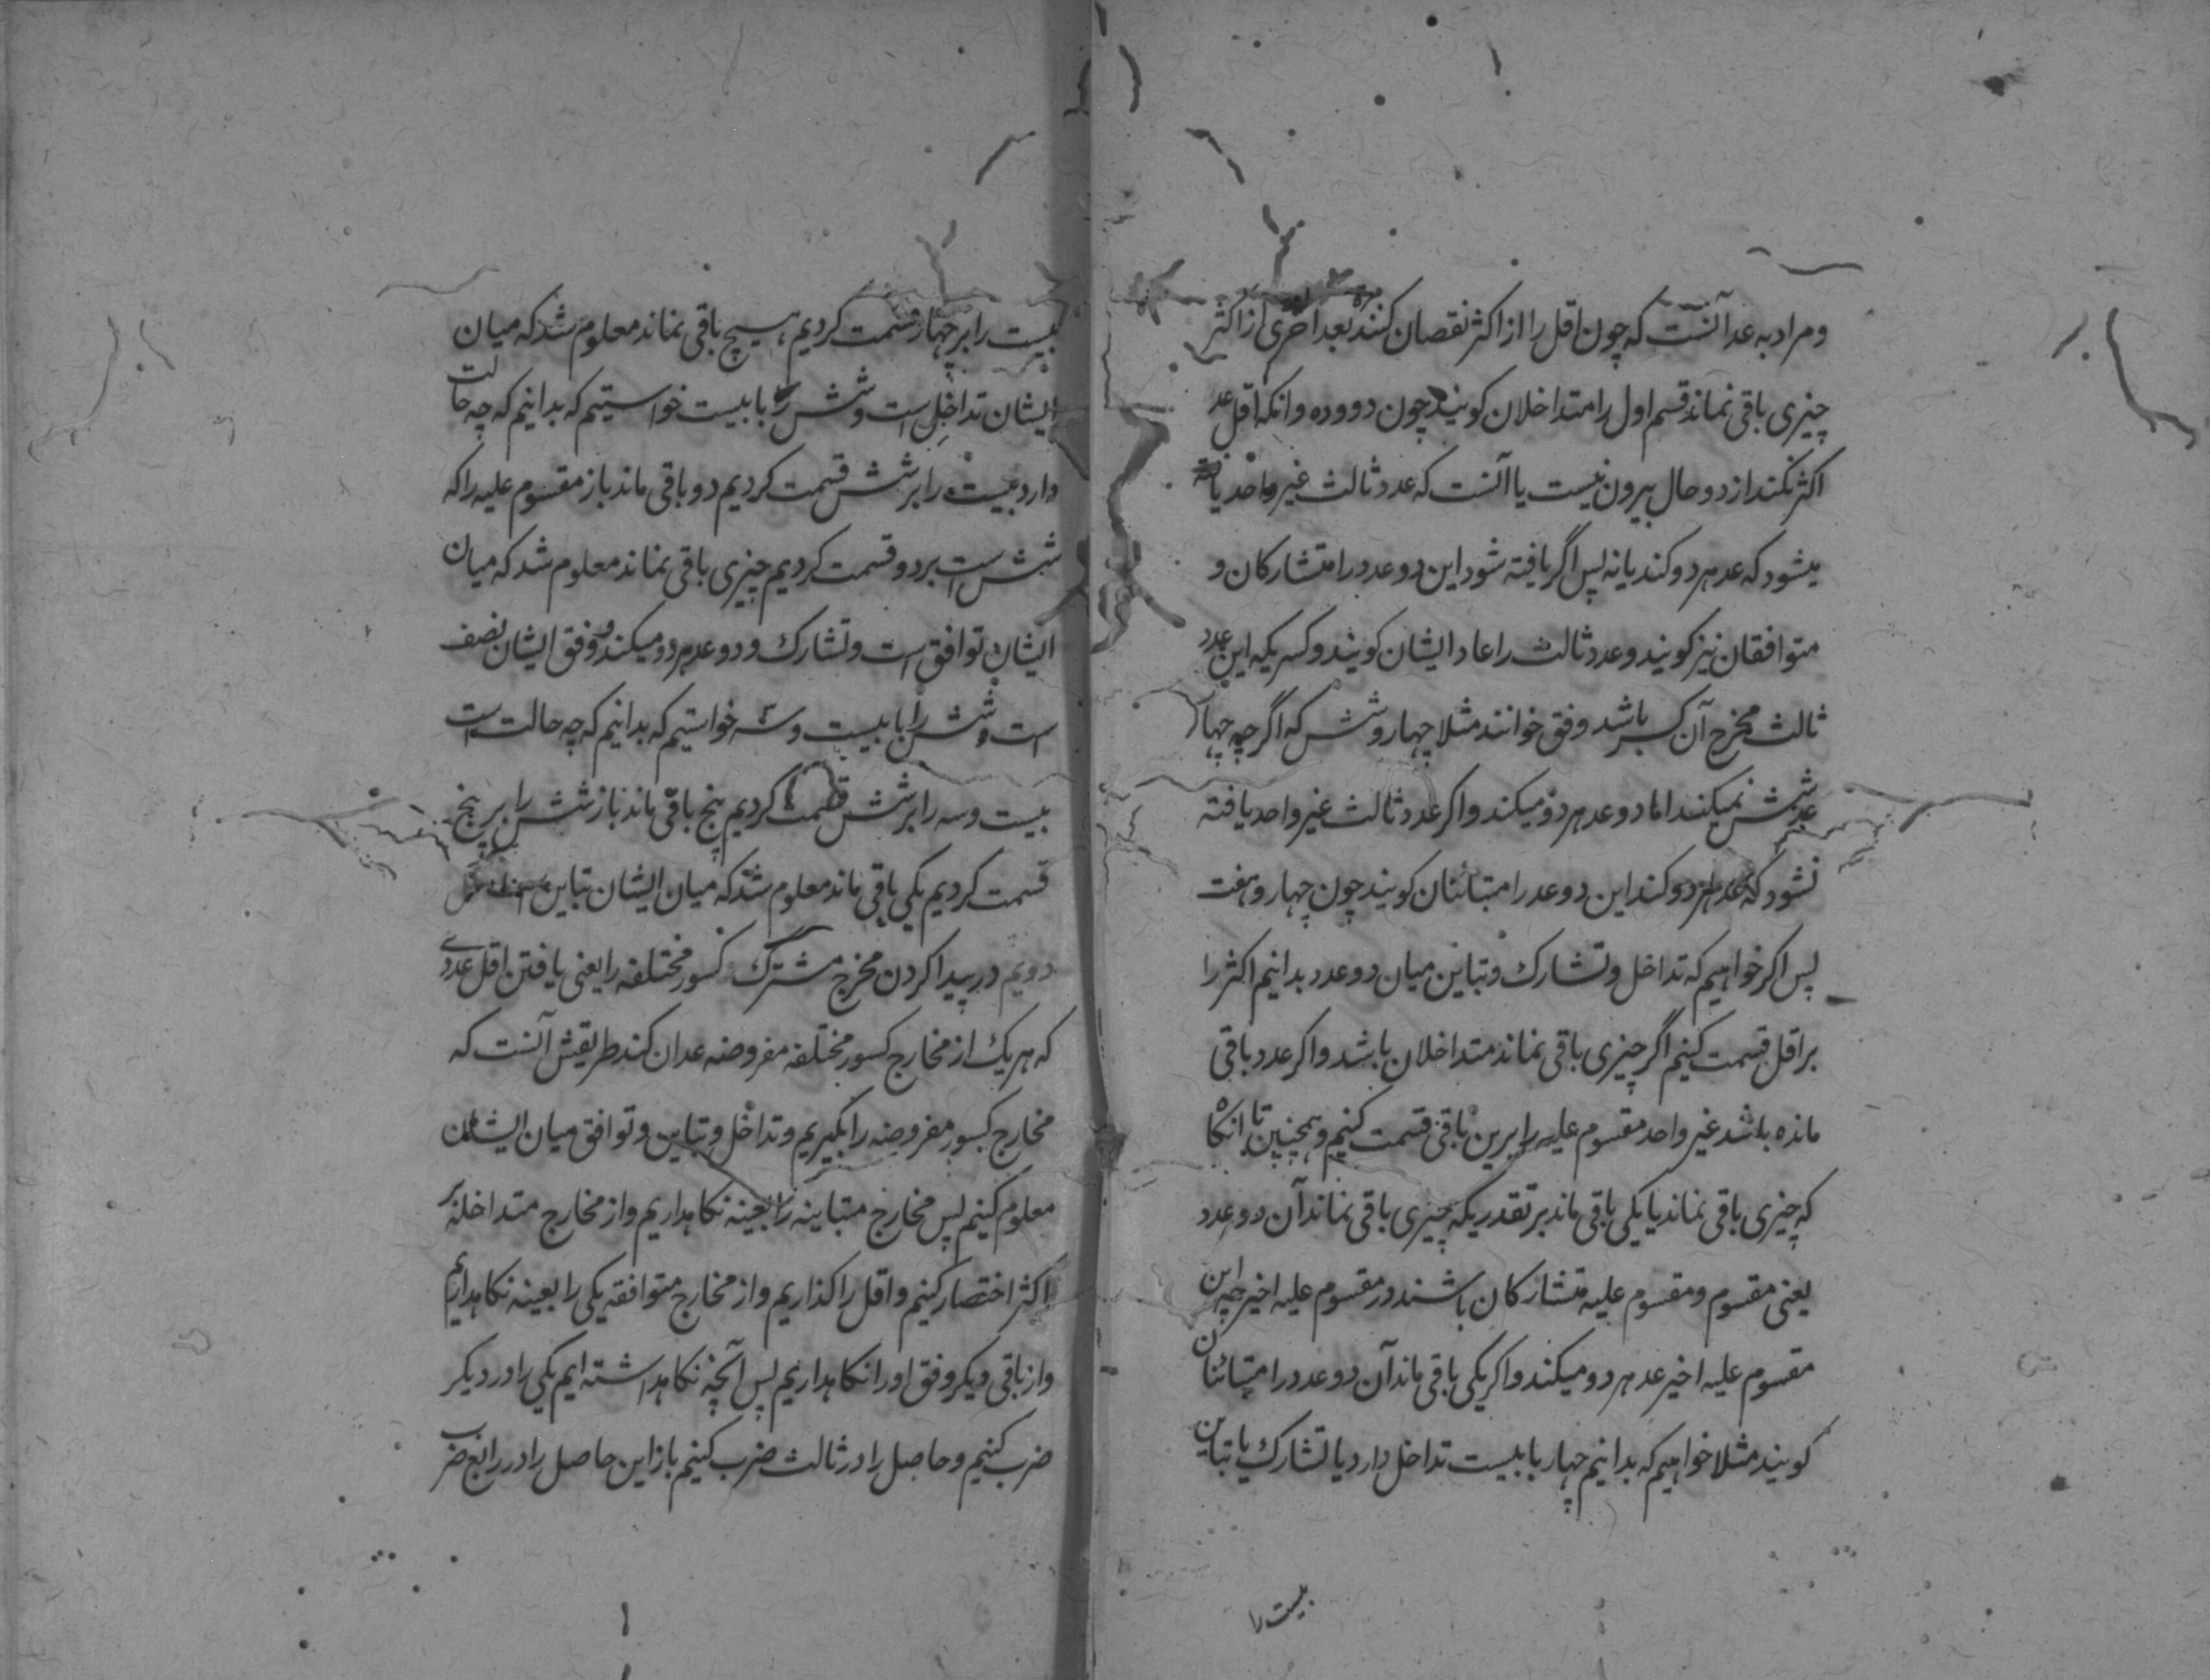 و مراد به عد آنست که چون اقل را از اکثر نقصان کنند مرة بعد اخری از اکثر
چیزی باقی نماند قسم اول را متداخلان کویند چون دو و ده و انکه اقل عد
اکثر نکند از دو حال بیرون نیست یا آنست که عدد ثالث غیر واحد یافته
میشود که عد هر دو کند یا نه پس اگر یافته شود این دو عدد را متشارکان و
متوافقان نیز کویند و عدد ثالث را عاد ایشان کویند و کسریکه این عدد
ثالث مخرج آن کسر باشد وفق خوانند مثلا چهار و شش که اگرچه چهار
عد شش نمیکند اما دو عد هر دو میکند و اکر عدد ثالث غیر واحد یافته
نشود که عد هر دو کند این دو عدد را متبائنان کویند چون چهار و هفت
پس اکر خواهیم که تداخل و تشارک و تباین میان دو عدد بدانیم اکثر را
بر اقل قسمت کنیم اگر چیزی باقی نماند متداخلان باشد و اکر عدد باقی
مانده باشد غیر واحد مقسوم علیه را برین باقی قسمت کنیم و همچنین تا انکا
که چیزی باقی نماند یا یکی باقی ماند بر تقدیریکه چیزی باقی نماند آن دو عدد
یعنی مقسوم و مقسوم علیه متشارکان باشند در مقسوم علیه اخیر چه این
مقسوم علیه اخیر عد هر دو میکند و اکر یکی باقی ماند آن دو عدد را متبائنان
کویند مثلا خواهیم که بدانیم چهار با بیست تداخل دارد یا تشارک یا تباین
بیست را
بیست را بر چهار قسمت کردیم هیچ باقی نماند معلوم شد که میان
ایشان تداخل است و شش را با بیست خواستیم که بدانیم که چه حالت
دارد بیست را بر شش قسمت کردیم دو باقی ماند باز مقسوم علیه را که
شش است بر دو قسمت کردیم چیزی باقی نماند معلوم شد که میان
ایشان توافق است و تشارک و دو عد هر دو میکند و وفق ایشان نصف
است و شش را با بیست و سه خواستیم که بدانیم که چه حالت است
بیست و سه را بر شش قسمت کردیم پنج باقی ماند باز شش را بر پنج
قسمت کردیم یکی باقی ماند معلوم شد که میان ایشان تباین است
دویم در پیدا کردن مخرج مشترک کسور مختلفه را یعنی یافتن اقل عددی
که هر یک از مخارج کسور مختلفه مفروضه عد ان کند طریقش آنست که
مخارج کسور مفروضه را بگیریم و تداخل و تباین و توافق میان ایشان
معلوم کنیم پس مخارج متباینه را بعینه نکاهداریم و از مخارج متداخله بر
اکثر اختصار کنیم و اقل را کذاریم و از مخارج متوافقه یکی را بعینه نکاهداریم
و از باقی دیکر وفق او را نکاهداریم پس آنچه نکاهداشته ایم یکی را در دیکر
ضرب کنیم و حاصل را در ثالث ضرب کنیم باز این حاصل را در رابع ضرب